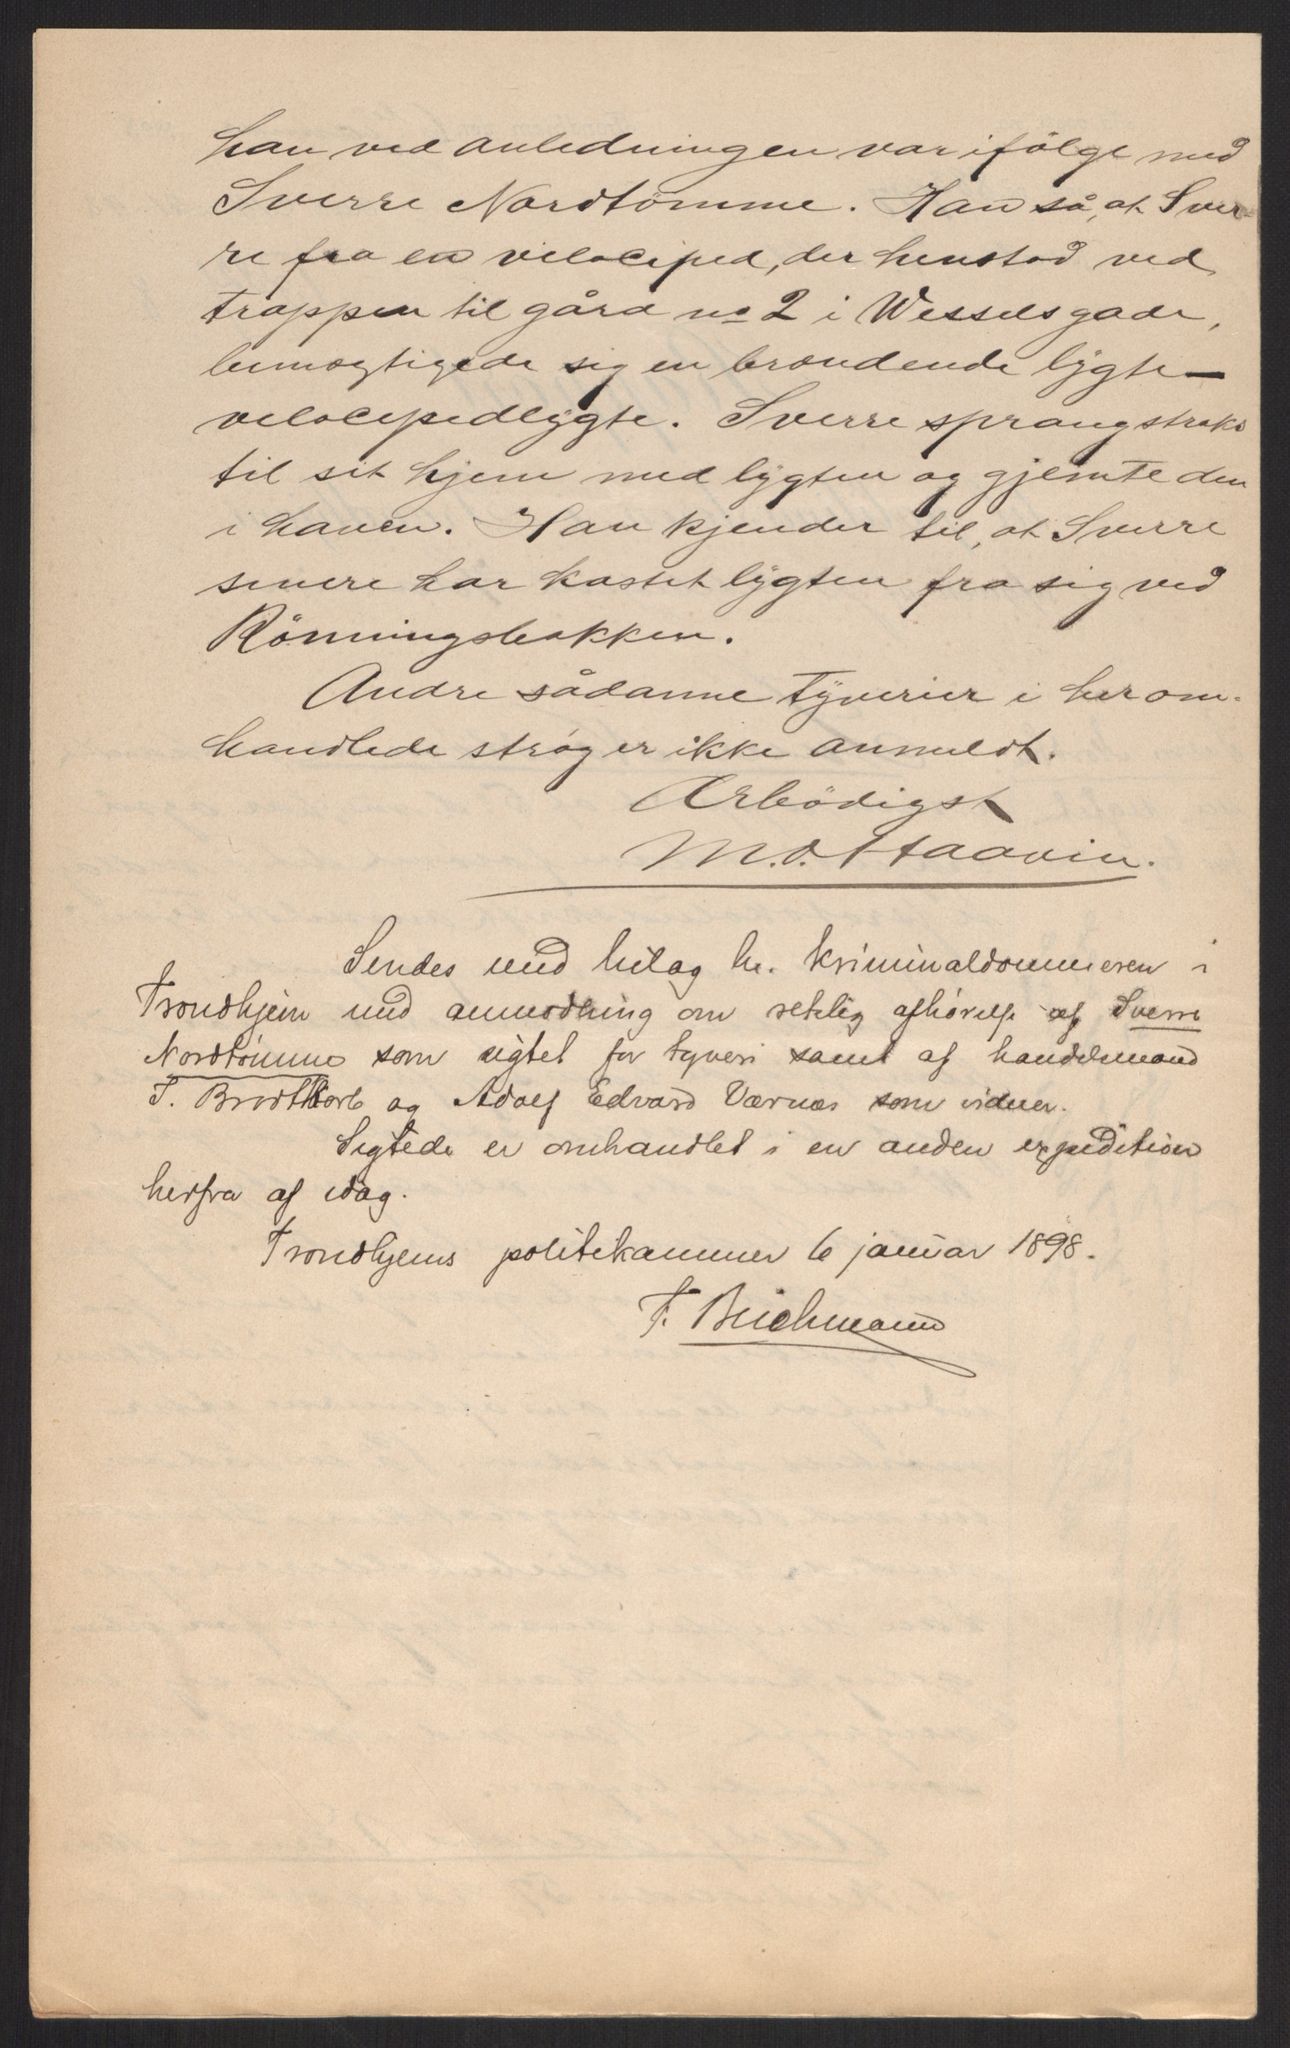 han ved anledningen var ifölge med
Sverre Nordtömme. Han så, at Sver-
re fra en velociped, der henstod ved
trappen til gård no 2 i Wesselsgade,
bemægtigede sig en brændende lygte—
velocipedlygte. Sverre sprang straks
til sit hjem med lygten og gjemte den
i haven. Han kjender til, at Sverre
senere har kastet lygten fra sig ved
Rönningsbakken.
Andre sådanne tyverier i her om-
handlede strøg er ikke anmeldt.
Ærbödigst
M. O. Haavin.
Sendes med bilag hr. kriminaldommeren i
Trondhjem med anmodning om retslig afhørelse af Sverre
Nordtømme som sigtet for tyveri samt af handelsmand
F. Brodtkorb og Adolf Edvard Værnes som vidner.
Sigtede er omhandlet i en anden expedition
herfra af idag.
Trondhjems politikammer 6 januar 1898.
F. Buchmann